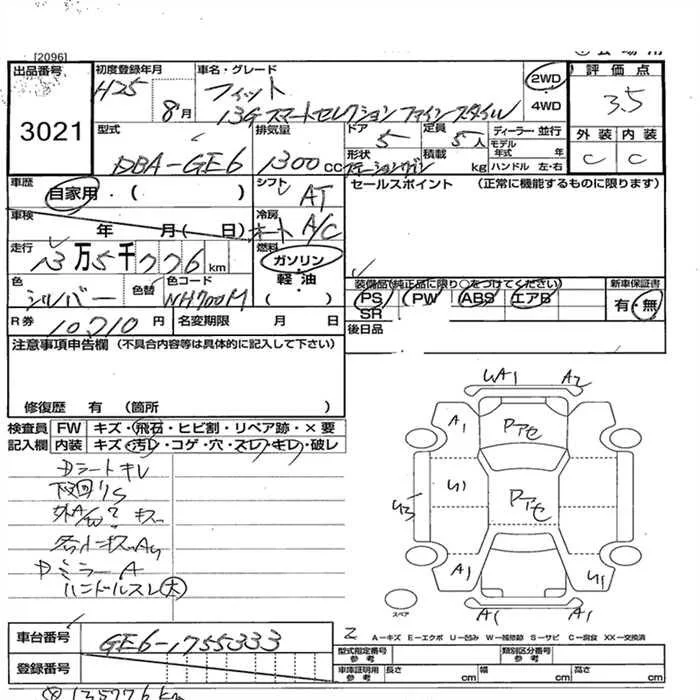 [2096]
出品番号
3021
初度登録年月
H25 8月
車名・グレード
フィット
13G スマートセレクション ファインスタイル
2WD
4WD
評価点
3.5
外装 内装
C C
型式
DBA-GE6
排気量
1300 CC
ドア 5
定員 5人
形状 ステーションワゴン
積載 kg
ディーラー・並行
モデル年式 年
ハンドル 左・右
車歴
自家用・( )
シフト AT
セールスポイント (正常に機能するものに限ります)
車検
年 月( 日)
冷房 オート A/C
走行
13万5千776km
燃料
ガソリン・
軽油
( )
色 シルバー
色替
色コード NH700M
装備品(純正品に限り○をつけてください)
PS PW ABS エアB
SR
新車保証書
有・無
R券 10,710円
名変期限 月 日
後日品
注意事項申告欄 (不具合内容等は具体的に記入して下さい)
修復歴 有 (箇所 )
検査員記入欄
FW キズ・飛石・ヒビ割・リペア跡・×要
内装 キズ・汚レ・コゲ・穴・スレ・キレ・破レ
Dシートキレ
Dミラー A
ハンドルスレ 大
WA1 A2
A1
ドアセ
U1
ドアセ
U3
A1
U1
A1 A1
スペア
A-キズ E-エクボ U-凹み W-補修跡 S-サビ C-腐食 XX-交換済
車台番号
GE6-1755333
登録番号
型式指定番号 参考
類別区分番号 参考
車庫証明用 参考
長さ cm 幅 cm 高さ cm
135776km